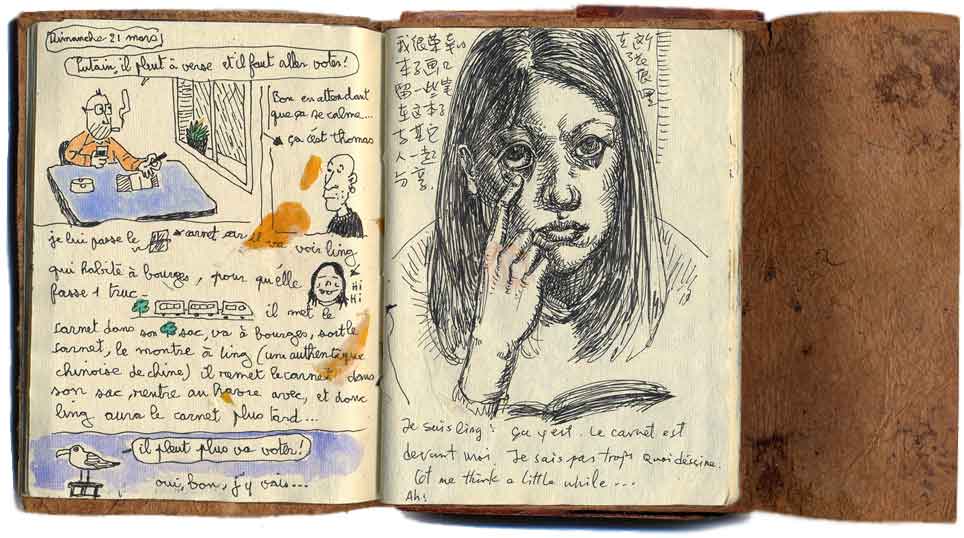 Dimanche 21 mars
Putain, il pleut à verse et il faut aller voter!
Bon en attendant
que ça se calme...
ça c'est thomas
je lui passe le carnet car il va voir ling
qui habite à bourges, pour qu'elle
fasse 1 truc -
Hi
Hi
il met le
carnet dans son sac, va à bourges, sort le
carnet, le montre à ling (une authentique
chinoise de chine) il remet le carnet dans
son sac, rentre au havre avec, et donc
ling aura le carnet plus tard...
il pleut plus va voter!
oui, bon, j'y vais...
我很荣幸
留一些
在这本子
与其它
人一起
分享.
在这个
Je suis ling! ça y est. Le carnet est
devant moi. Je sais pas trop quoi déssiner.
Let me think a little while...
Ah!